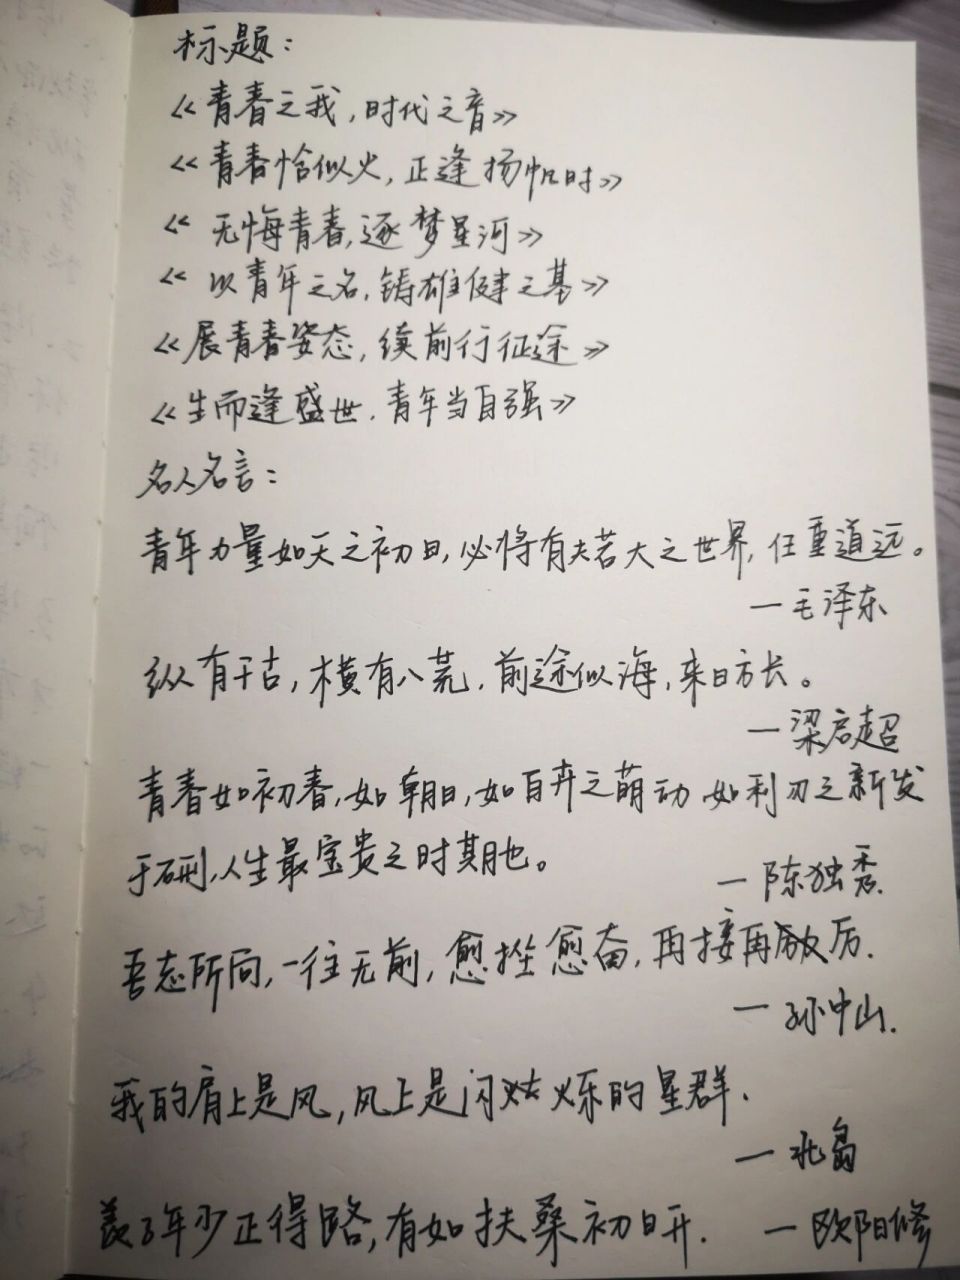 标题：
《青春之我，时代之音》
《青春恰似火，正逢扬帆时》
《无悔青春，逐梦星河》
《以青年之名，铸雄健之基》
《展青春姿态，续前行征途》
《生而逢盛世，青年当自强》
名人名言：
青年力量如天之初日，必将有夫若大之世界，任重道远。
—毛泽东
纵有千古，横有八荒，前途似海，来日方长。
—梁启超
青春如初春，如朝日，如百卉之萌动 如利刃之新发
于硎，人生最宝贵之时期也。
—陈独秀.
吾志所向，一往无前，愈挫愈奋，再接再厉.
—孙中山.
我的肩上是风，风上是闪烁的星群.
—北岛
羡了年少正得路，有如扶桑初日升. —欧阳修